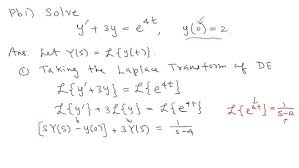 Pb1) Solve
y' + 3y = e^{4t}, y(0) = 2
Ans. Let Y(s) = L{y(t)}.
① Taking the Laplace Transform of DE
L{y' + 3y} = L{e^{4t}}
L{y'} + 3L{y} = L{e^{4t}} L{e^{at}} = 1/(s-a)
[sY(s) - y(0)] + 3Y(s) = 1/(s-4)